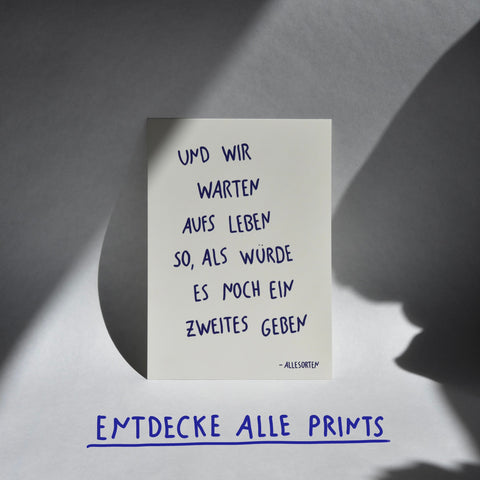 UND WIR
WARTEN
AUFS LEBEN
SO, ALS WÜRDE
ES NOCH EIN
ZWEITES GEBEN
- ALLESORTEN
ENTDECKE ALLE PRINTS